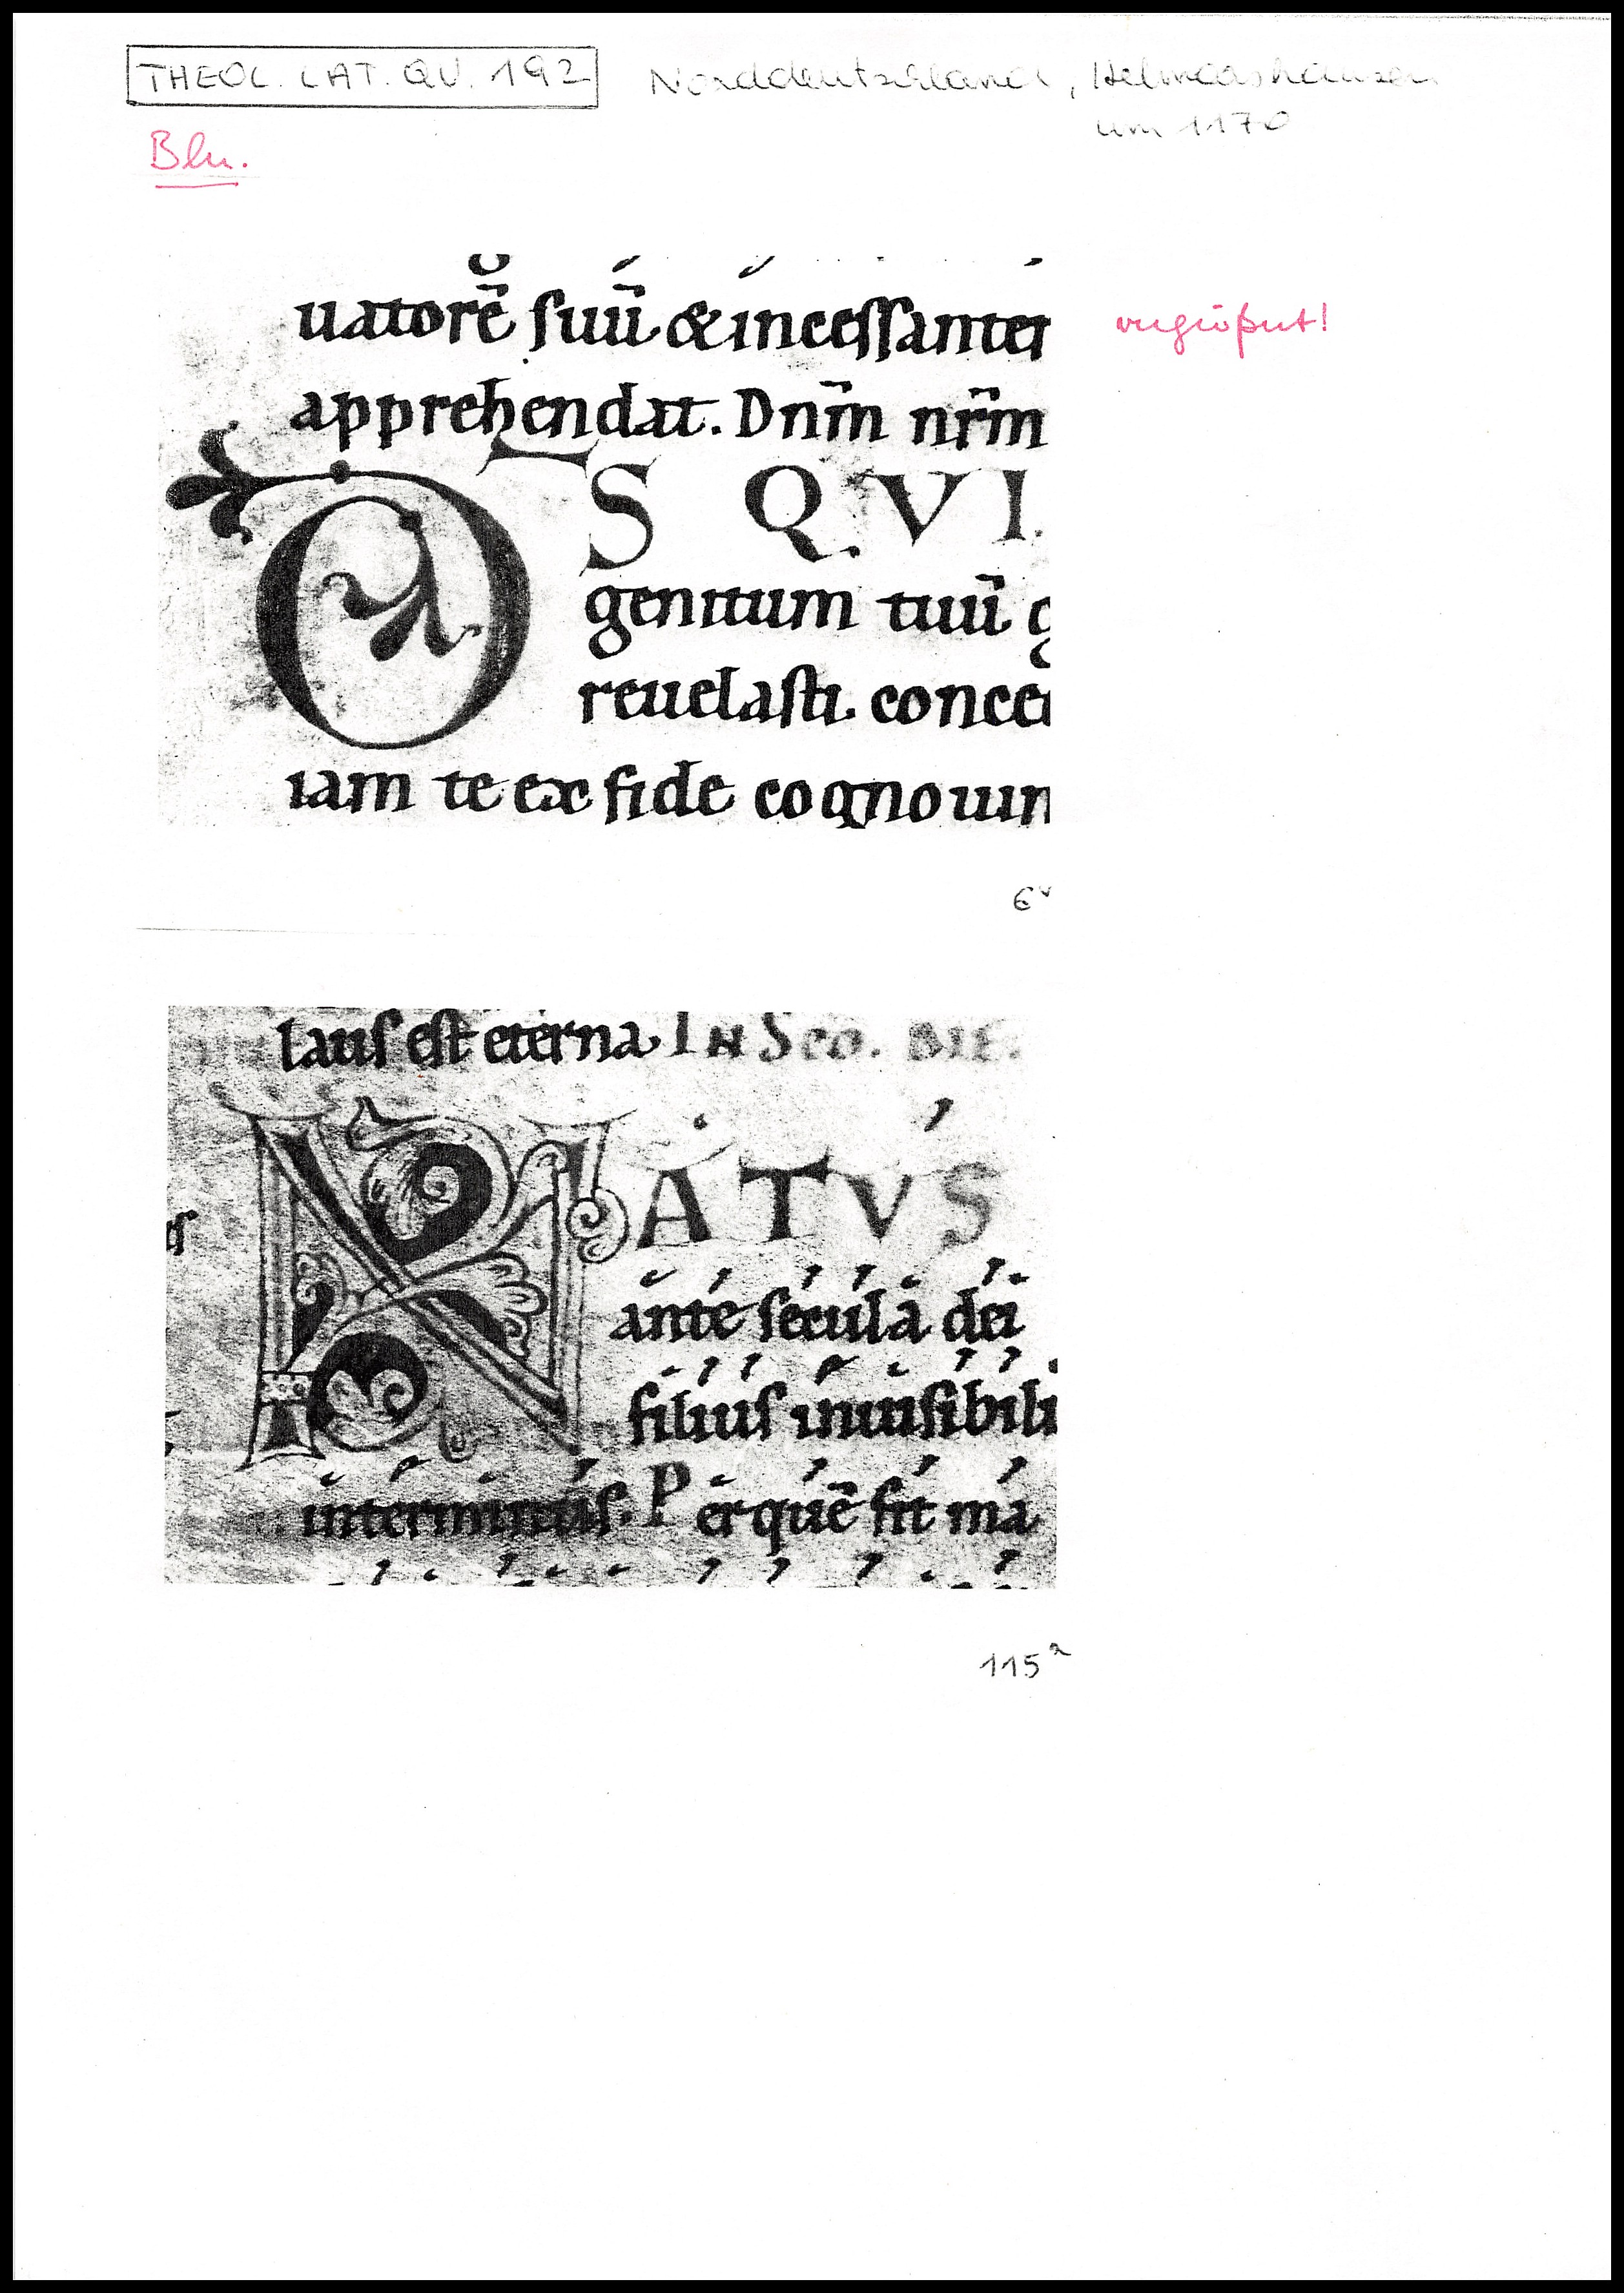 THEOL. LAT. QU. 192
Norddeutschland, Helmarshausen
um 1170
Bln.
uatorē suū & incessanter
vergrößert!
apprehendat. Dnm̄ nrm̄
DS QVI
genitum tuū
reuelasti. conce
iam te ex fide cognouim
6v
laus est eterna IN Sco.
NATVS
ante secula dei
filius inuisibili
interminus. Per quē fit ma
115a